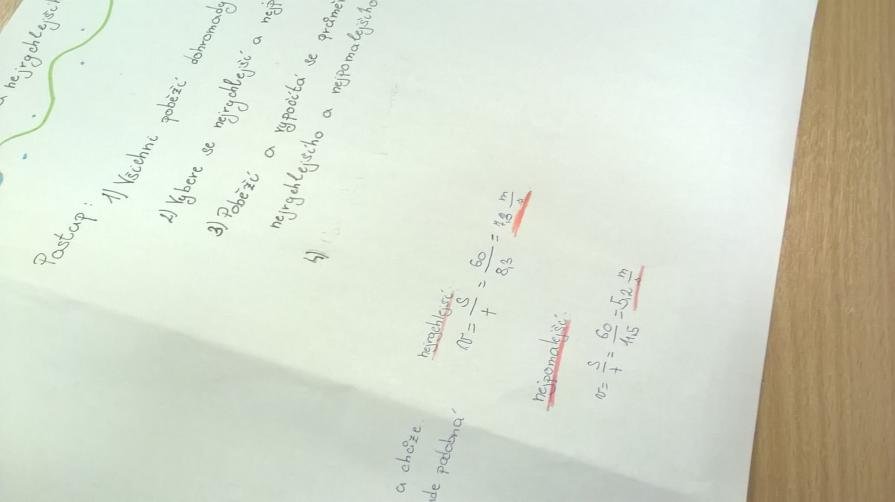 nejrychlejší
Postup: 1) Všichni poběží dohromady
2) Vybere se nejrychlejší a nejp
3) Poběží a vypočítá se průměr
nejrychlejšího a nejpomalejšího
4)
a chůze.
ude podobná
nejrychlejší:
v = s/t = 60/8,3 = 7,3 m/s
nejpomalejší:
v = s/t = 60/11,5 = 5,2 m/s